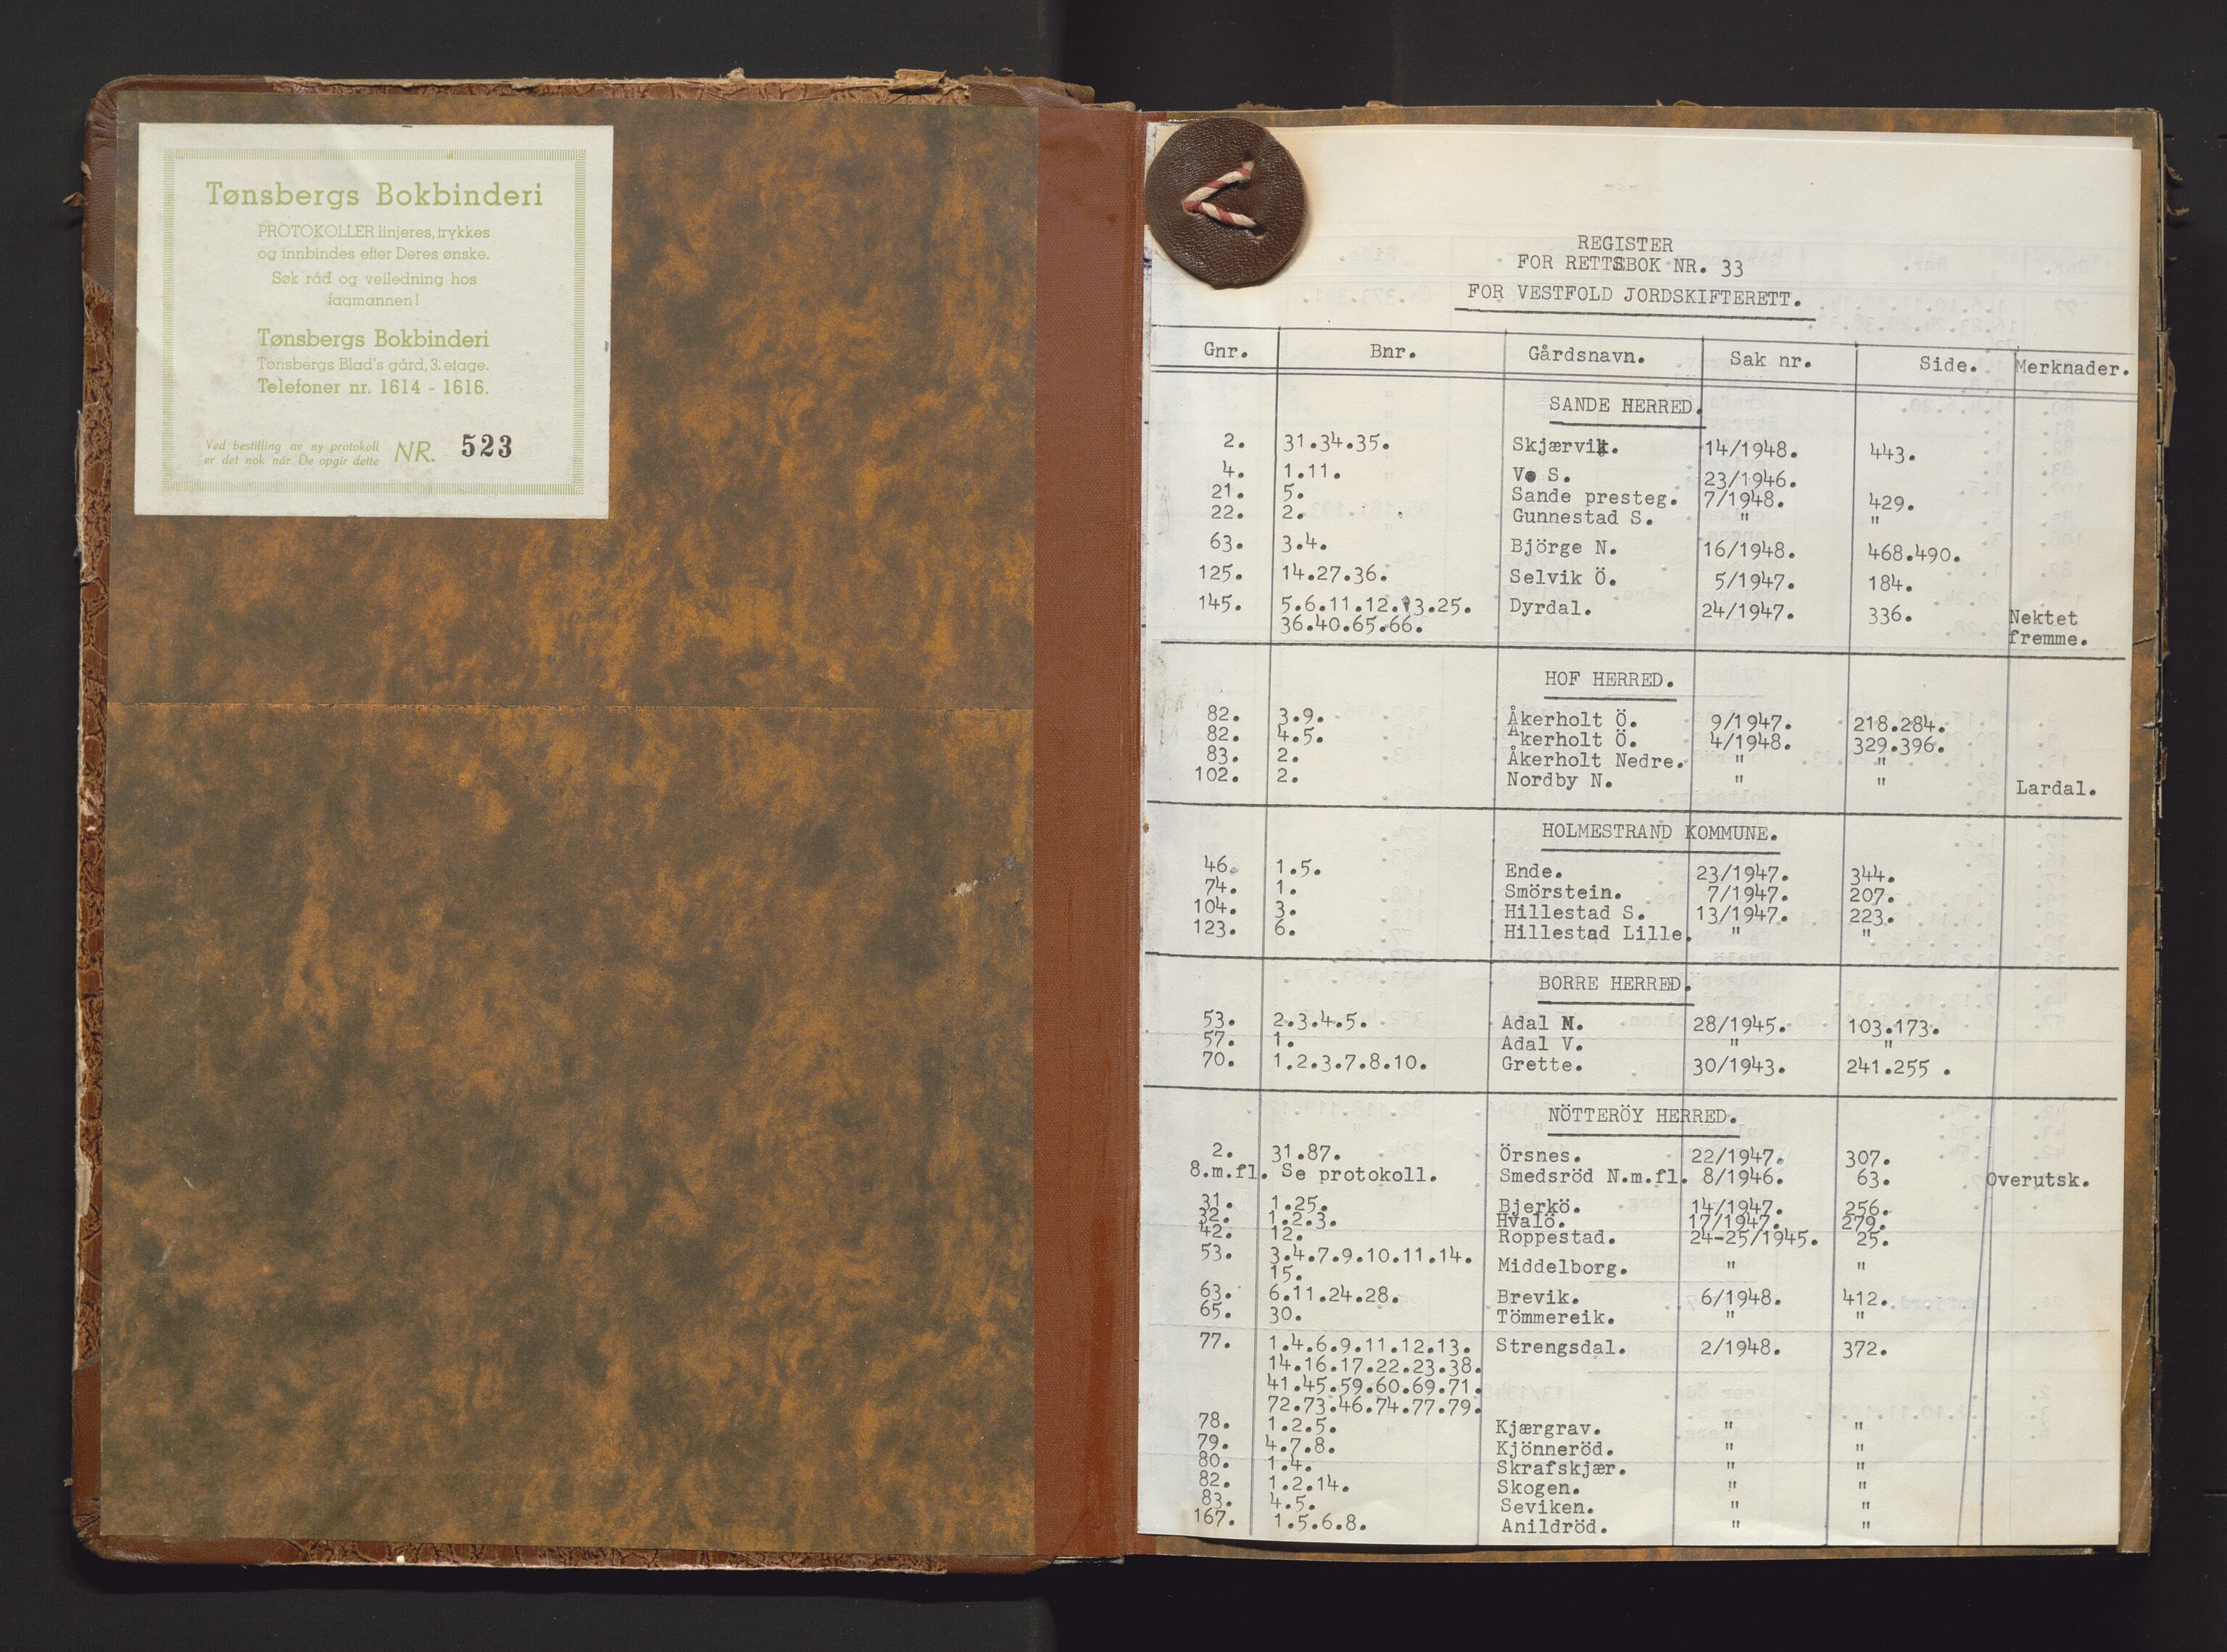 Tønsbergs Bokbinderi
PROTOKOLLER linjeres, trykkes
og innbindes efter Deres ønske.
Søk råd og veiledning hos
fagmannen!
Tønsbergs Bokbinderi
Tønsbergs Blad's gård, 3. etage.
Telefoner nr. 1614 - 1616.
Ved bestilling av ny protokoll
er det nok når De opgir dette NR. 523
REGISTER
FOR RETTSBOK NR. 33
FOR VESTFOLD JORDSKIFTERETT.
Gnr. Bnr. Gårdsnavn. Sak nr. Side. Merknader.
SANDE HERRED.
2. 31.34.35. Skjærvik. 14/1948. 443.
4. 1.11. Vø S. 23/1946.
21. 5. Sande presteg. 7/1948. 429.
22. 2. Gunnestad S. " "
63. 3.4. Björge N. 16/1948. 468.490.
125. 14.27.36. Selvik Ö. 5/1947. 184.
145. 5.6.11.12.13.25. Dyrdal. 24/1947. 336. Nektet
36.40.65.66. fremme.
HOF HERRED.
82. 3.9. Åkerholt Ö. 9/1947. 218.284.
82. 4.5. Åkerholt Ö. 4/1948. 329.396.
83. 2. Åkerholt Nedre. " "
102. 2. Nordby N. " " Lardal.
HOLMESTRAND KOMMUNE.
46. 1.5. Ende. 23/1947. 344.
74. 1. Smörstein. 7/1947. 207.
104. 3. Hillestad S. 13/1947. 223.
123. 6. Hillestad Lille. " "
BORRE HERRED.
53. 2.3.4.5. Adal N. 28/1945. 103.173.
57. 1. Adal V. " "
70. 1.2.3.7.8.10. Grette. 30/1943. 241.255 .
NÖTTERÖY HERRED.
2. 31.87. Örsnes. 22/1947. 307.
8.m.fl. Se protokoll. Smedsröd N.m.fl. 8/1946. 63. Overutsk.
31. 1.25. Bjerkö. 14/1947. 256.
32. 1.2.3. Hvalö. 17/1947. 279.
42. 12. Roppestad. 24-25/1945. 25.
53. 3.4.7.9.10.11.14.
15. Middelborg. " "
63. 6.11.24.28. Brevik. 6/1948. 412.
65. 30. Tömmereik. " "
77. 1.4.6.9.11.12.13. Strengsdal. 2/1948. 372.
14.16.17.22.23.38.
41.45.59.60.69.71.
72.73.46.74.77.79.
78. 1.2.5. Kjærgrav. " "
79. 4.7.8. Kjönneröd. " "
80. 1.4. Skrafskjær. " "
82. 1.2.14. Skogen. " "
83. 4.5. Seviken. " "
167. 1.5.6.8. Anildröd. " "